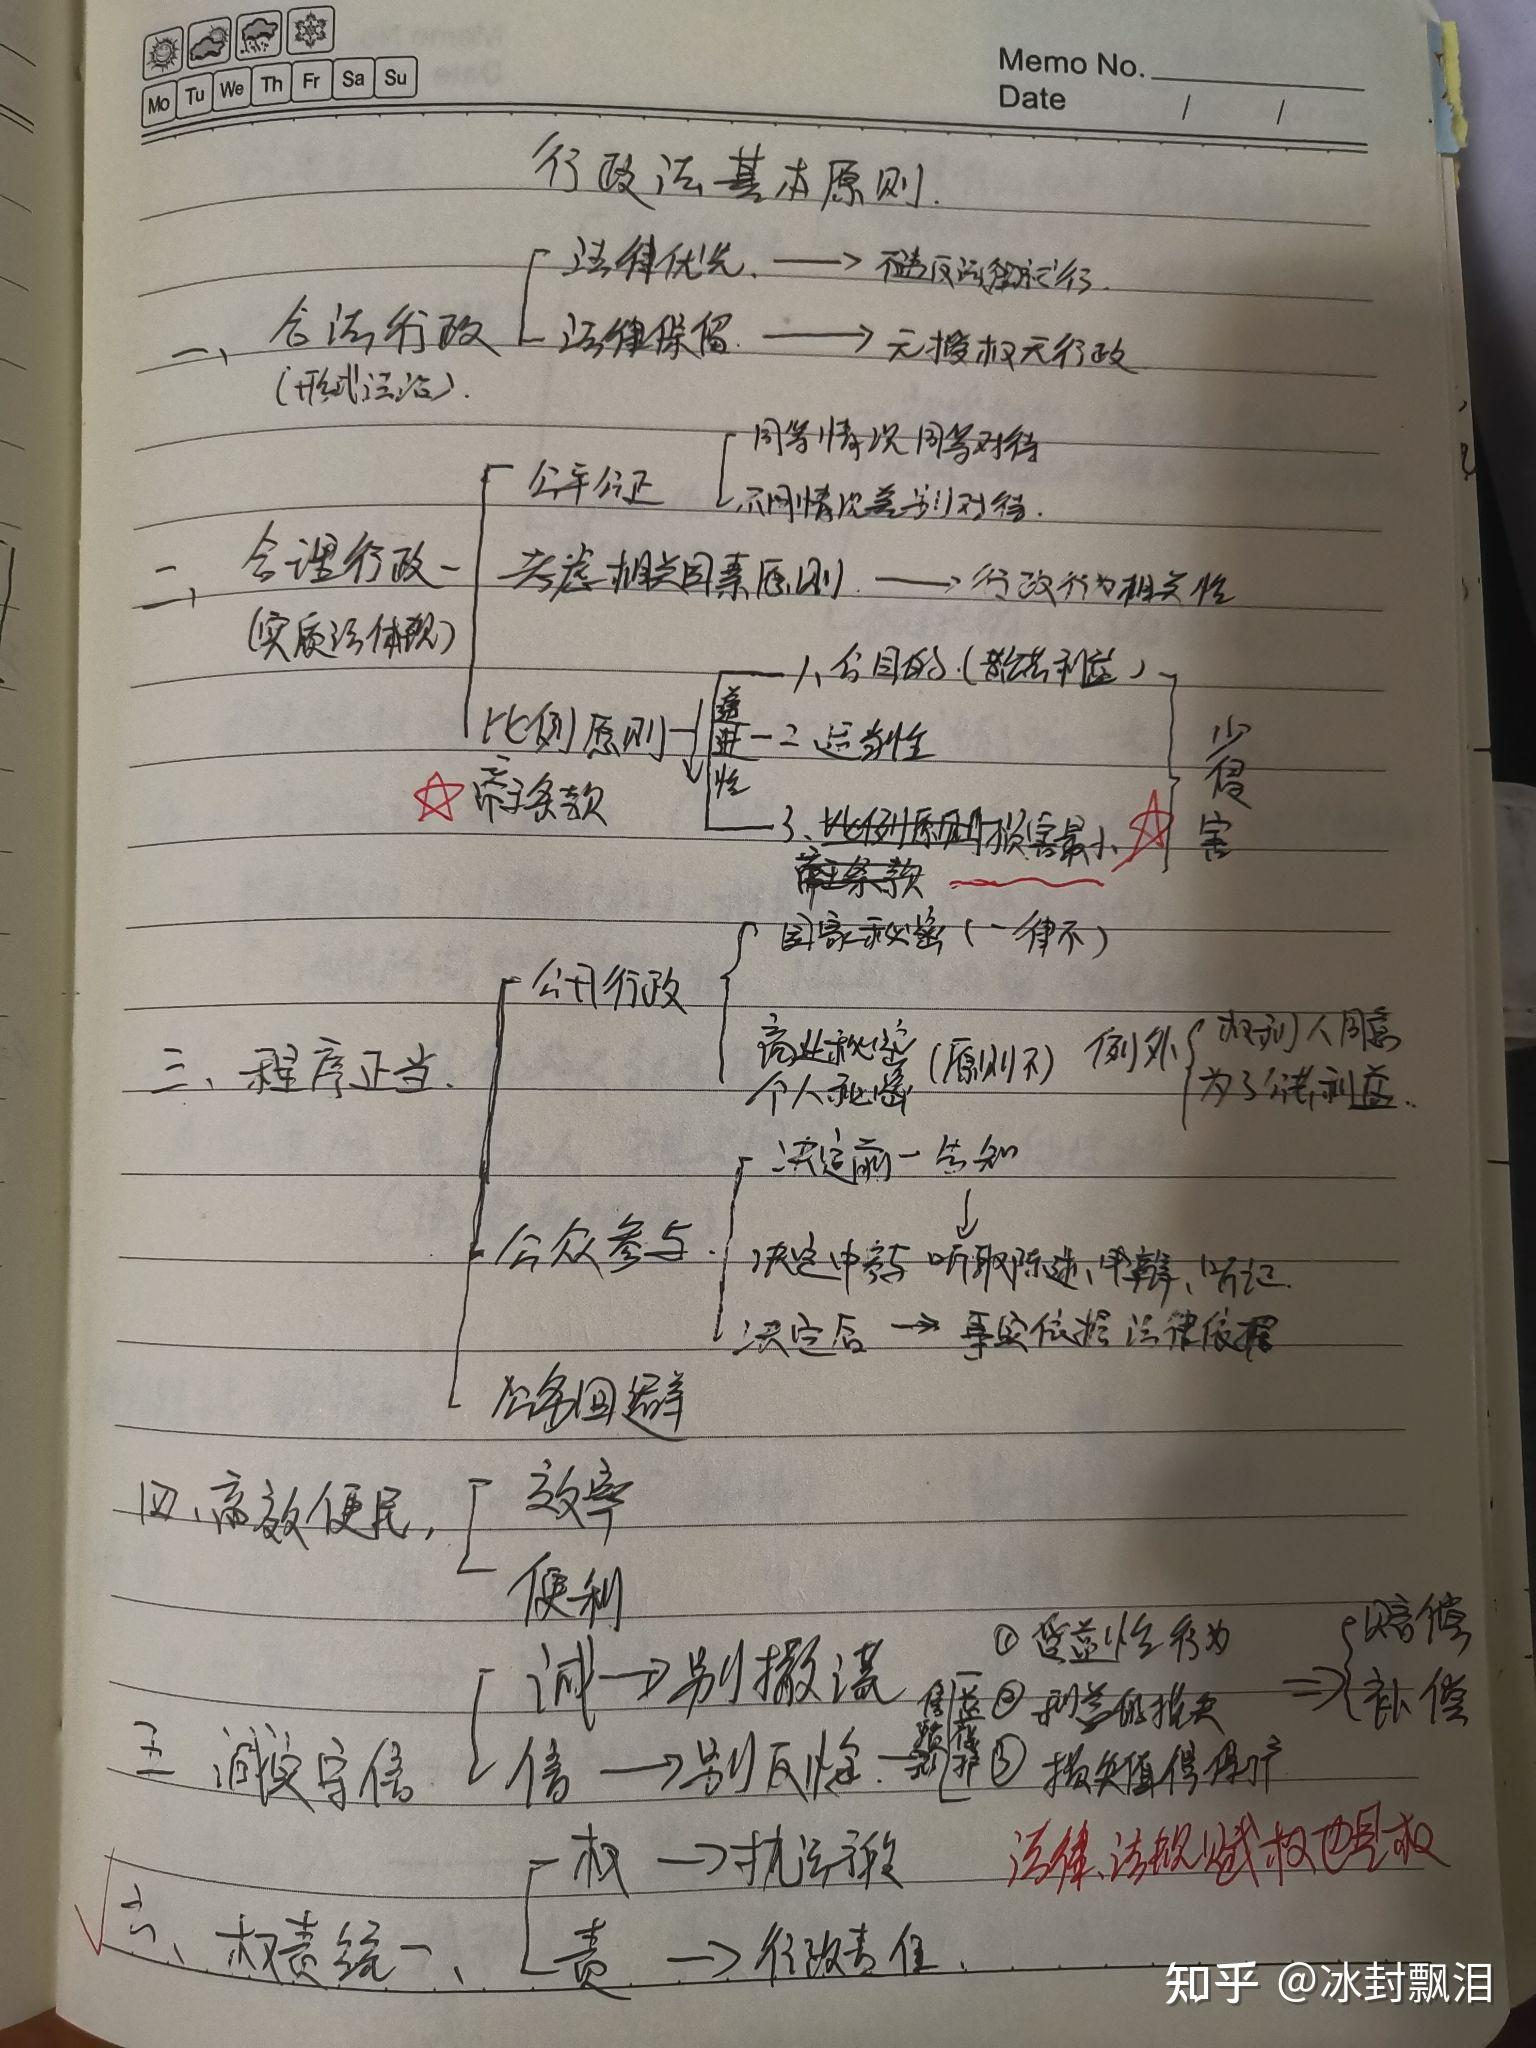 Mo Tu We Th Fr Sa Su
Memo No.
Date / /
行政法基本原则.
一、合法行政
(形式法治).
法律优先. → 不违反法律行.
法律保留. → 无授权无行政
二、合理行政
(实质法体现)
公平公正
同等情况同等对待
不同情况差别对待.
考虑相关因素原则. → 行政行为相关性
比例原则
☆帝王条款
递进性
1、公目的.(公共利益)
2 适当性
3、比例原则 损害最小 ☆
帝王条款
少侵害
三、程序正当.
公开行政
国家秘密(一律不)
商业秘密
个人秘密
(原则不) 例外
权利人同意
为了公共利益..
公众参与.
决定前—告知
↓
决定中 听取陈述、申辩、听证.
决定后 → 事实依据 法律依据
公务回避
四、高效便民,
效率
便利
五 诚实守信
诚→别撒谎
信→别反悔.
信赖利益保护
① 受益性行为
② 利益的损失
③ 损失值得保护
⇒ 赔偿
补偿
√六、权责统一、
权→执法
法律、法规赋权也是权
责→行政责任.
知乎 @冰封飘泪